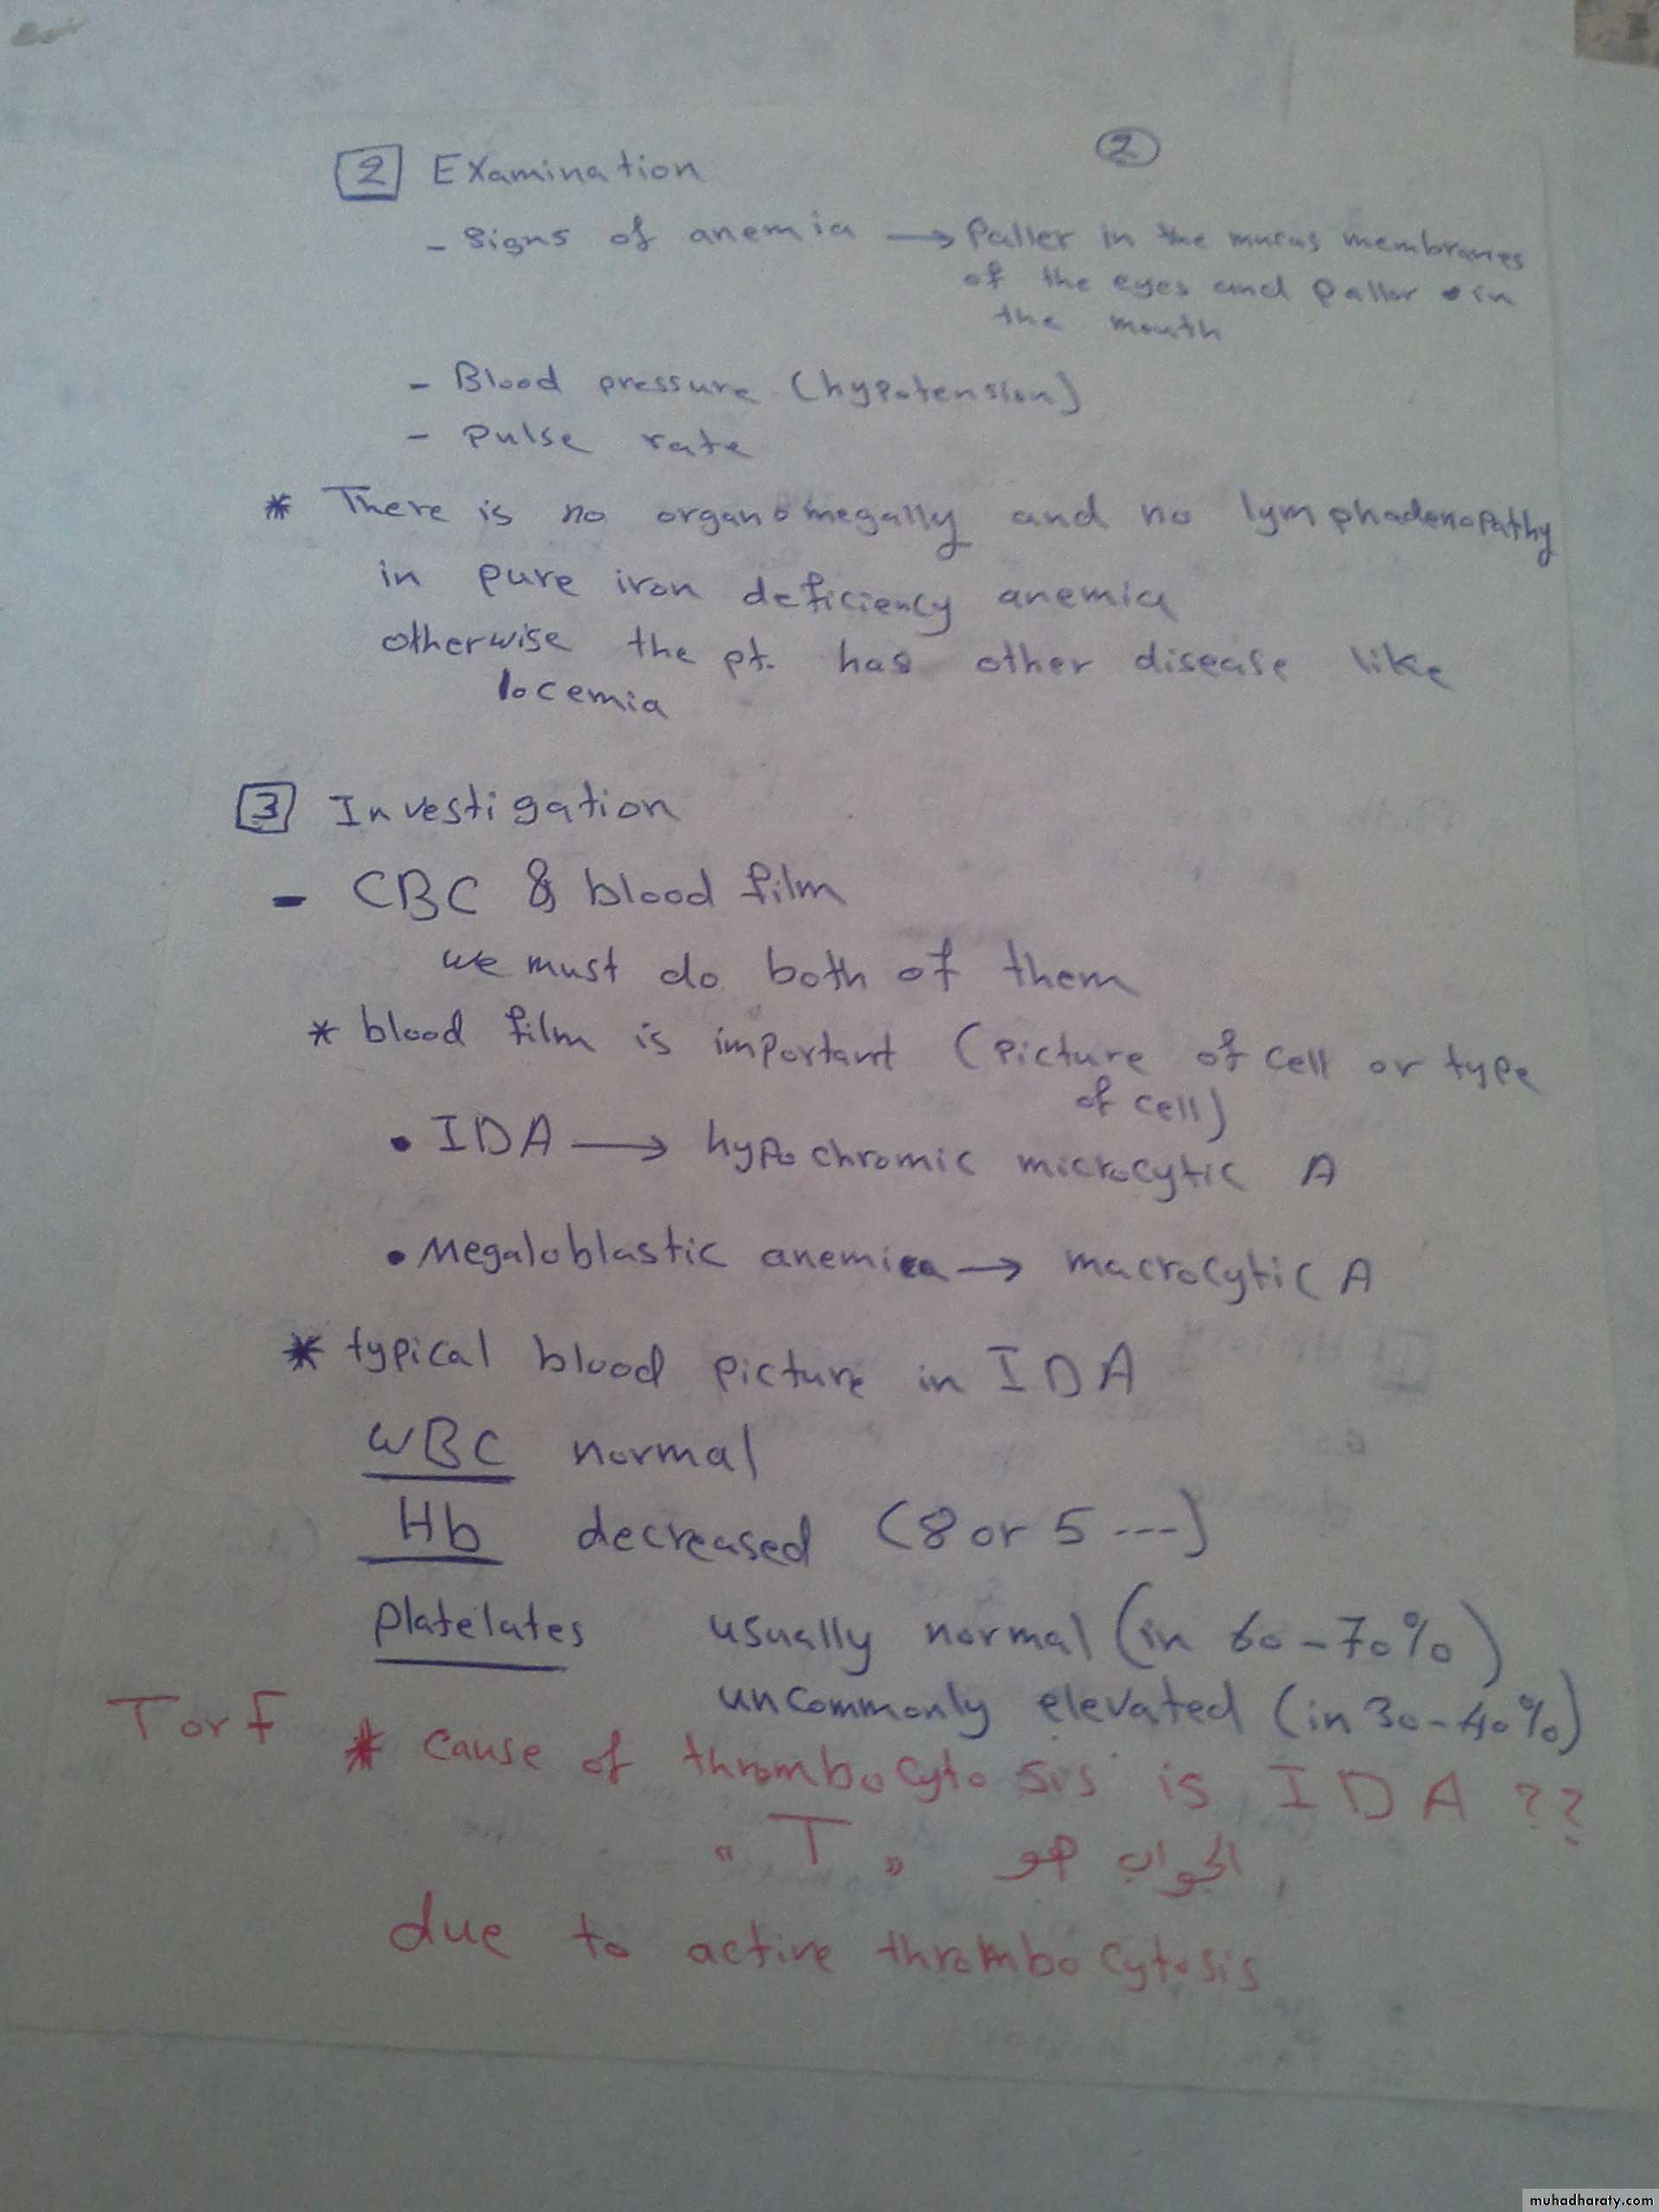 2
2 Examination
- Signs of anemia → Paller in the mucus membranes
of the eyes and pallor in
the mouth
- Blood pressure (hypotension)
- Pulse rate
* There is no organomegally and no lymphadenopathy
in pure iron deficiency anemia
otherwise the pt. has other disease like
locemia
3 Investigation
- CBC & blood film
we must do both of them
* blood film is important (picture of cell or type
of cell)
• IDA → hypochromic microcytic A
• Megaloblastic anemia → macrocytic A
* typical blood picture in IDA
WBC normal
Hb decreased (8 or 5 ---)
Platelates usually normal (in 60-70%)
uncommonly elevated (in 30-40%)
T or F * cause of thrombocytosis is IDA ??
الجواب هو "T"
due to active thrombocytosis
muhadharaty.com